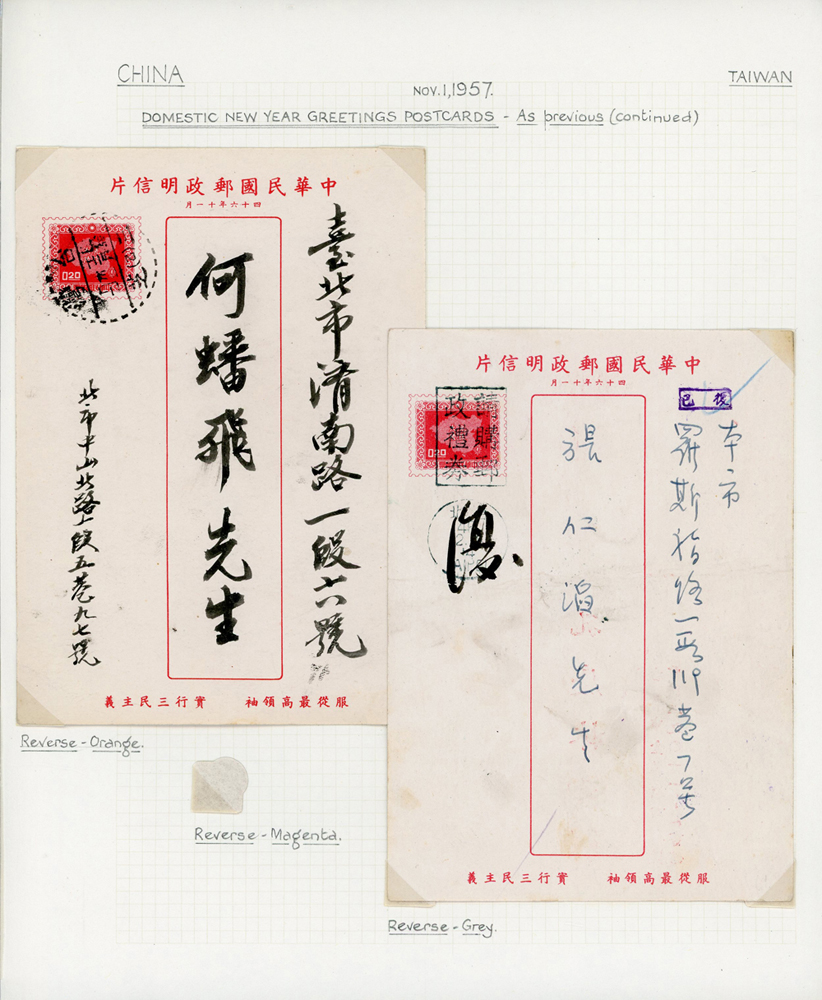 CHINA
TAIWAN
NOV. 1, 1957.
DOMESTIC NEW YEAR GREETINGS POSTCARDS - As previous (continued)
片信明政郵國民華中
月一十年六十四
0.20
臺北市濟南路一段十六號
何蟠飛先生
北市中山北路二段五巷九七號
義主民三行實 袖領高最從服
Reverse - Orange.
Reverse - Magenta.
片信明政郵國民華中
月一十年六十四
請購郵
政禮券
0.20
已復
復
本市
羅斯福路一段119巷7號
張仁滔先生
義主民三行實 袖領高最從服
Reverse - Grey.